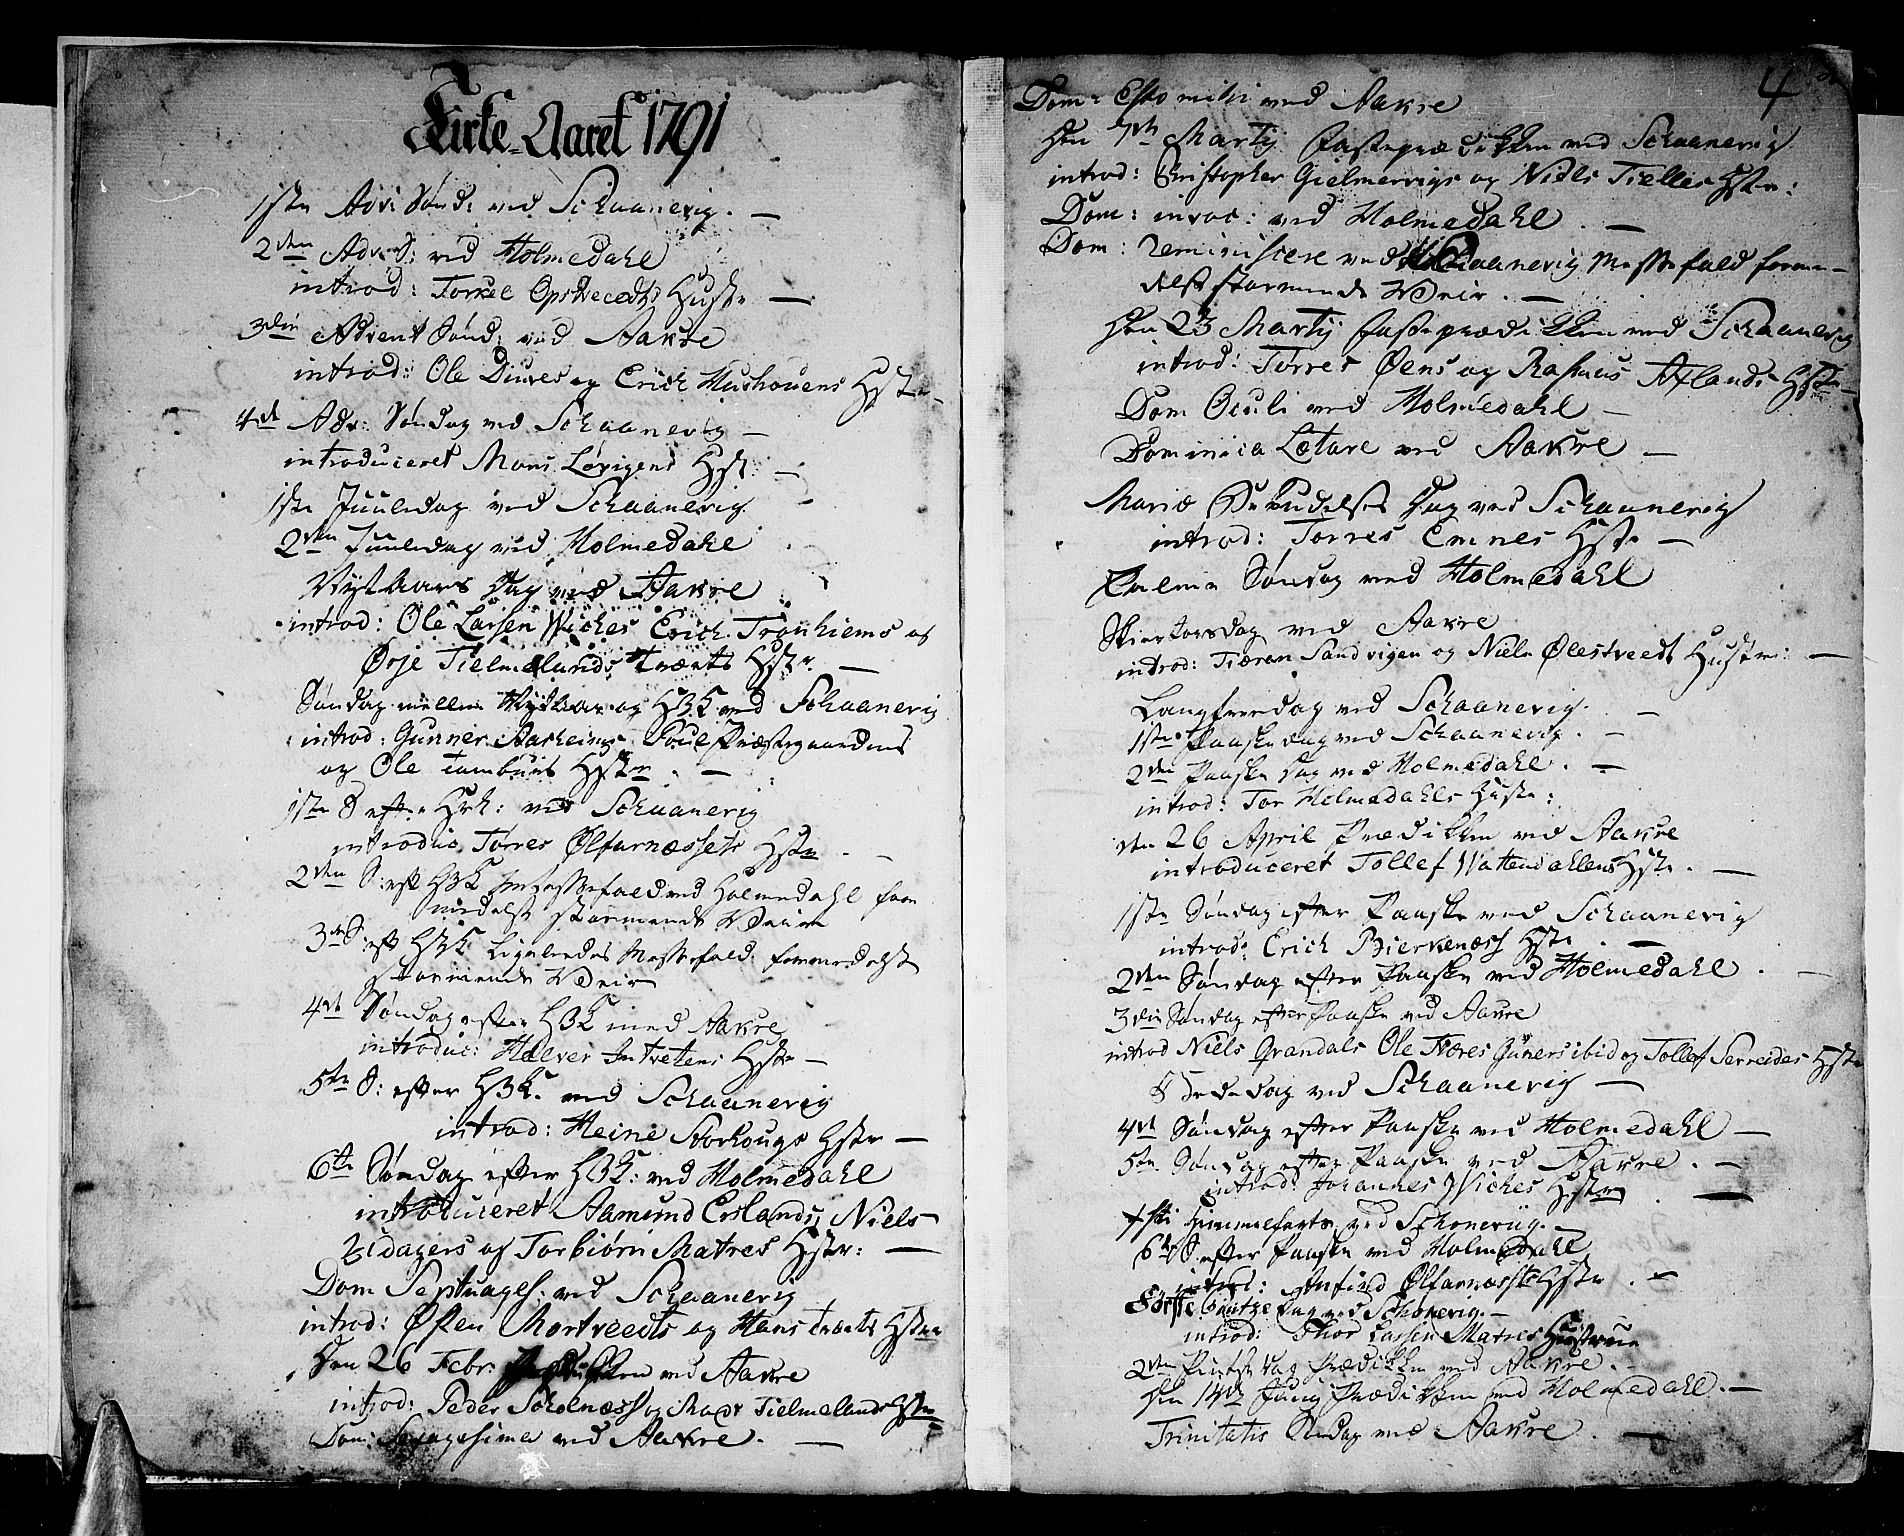 Kirke-Aaret 1791
1ste Adv: Sønd: ved Schaanevig. —
2den Adv: S: ved Holmedahl
introd: Torkel Opsveedts Hustr —
3die Advent Sønd: ved Aakre
introd: Ole Diures og Erich Hushouens Hstr —
4de Adv: Søndag ved Schaanevig —
introduceret Mons Løvigens Hst: —
1ste Juuledag ved Schaanevig
2den Juuledag ved Holmedahl
Nytaars Dag ved Aakre
introd: Ole Larsen Wiches Erich Tronhiems og
Ørje Tielmelands Hstr. —
Søndag mellem Nytaar og H3K ved Schaanevig
introd: Gunner Aarheims Poul Præstegaardens
og Ole Tamburs Hstr. —
1ste S efter H3K: ved Schaanevig
introduc: Tørres Ølfarnæssets Hstr. —
2den S: eft H3K Messefald ved Holmedahl for-
medelst stormende Veir
3die S: eft H3K Ligeledes Messefald formedelst
stormende Veir
4de Søndag efter H3K ved Aakre
introduc: Halver Intvetens Hstr —
5te S: efter H3K ved Schaanevig
introd: Heine Storhougs Hstr —
6te Søndag efter H3K: ved Holmedahl
introduceret Aamund Eslands, Niels
og Torbiørn Matres Hstr: —
Dom Septuages: ved Schaanevig
introd: Østen Mortveedts og Hans Hstr
Den 26 Febr: Prædikken ved Aakre
introd: Peder Scholnæss og Tielmelands Hstr
Dom: Sexagesima ved Aakre. —
4
Dom: Esto mihi ved Aakre
Den 7de Martij Fasteprædikken ved Schaanevig
introd: Christopher Gielmervigs og Niels Tielles Hstr:
Dom: invoc: ved Holmedahl. —
Dom: Reminiscere ved Schaanevig Messefald forme-
delst stormende Veir. —
Den 23 Martij Fasteprædikken ved Schaanevig
introd: Tørres Øens og Rasmus Axlands Hstr —
Dom Oculi ved Holmedahl —
Dominica Lætare ved Aakre —
Mariæ Bebudelses Dag ved Schaanevig
introd: Torres Emnes Hstr —
Palme Søndag ved Holmedahl
Skiertorsdag ved Aakre
introd: Tiæran Sandvigen og Niels Ølestveedt Hustr: —
Langfredag ved Schaanevig. —
1ste Paaskedag ved Schaanevig. —
2den Paaske Dag ved Holmedahl. —
introd: Tor Holmedahls Hustr:
den 26 April Prædikken ved Aakre
introduceret Tollef Vattendahlens Hstr. —
1ste Søndag efter Paaske ved Schaanevig
introd: Erich Bierkenæss Hstr. —
2den Søndag efter Paaske ved Holmedahl. —
3die Søndag efter Paaske ved Aakre
introd Niels Grandals Ole Næres Guners ibid og Tollef Serreides Hstr
Bededag ved Schaanevig —
4de Søndag efter Paaske ved Holmedahl —
5te Søndag efter Paaske ved Aakre. —
introd: Johannes Wiches Hstr. —
Xsti Himmelferts ved Schonevig. —
6te S. efter Paaske ved Holmedahl
introd: Anfind Ølfarnæssets Hstr. —
Første Pintze Dag ved Schonevig. —
introd: Thor Larsen Matres Hustrue
2den Pintse Dag Prædikken ved Aakre. —
Den 14de Junij Prædikken ved Holmedahl. —
Trinitatis Søndag ved Aakre. —